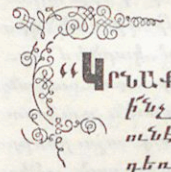 “ԿՐՆԱՔ
ինչ
ունե
դեռ